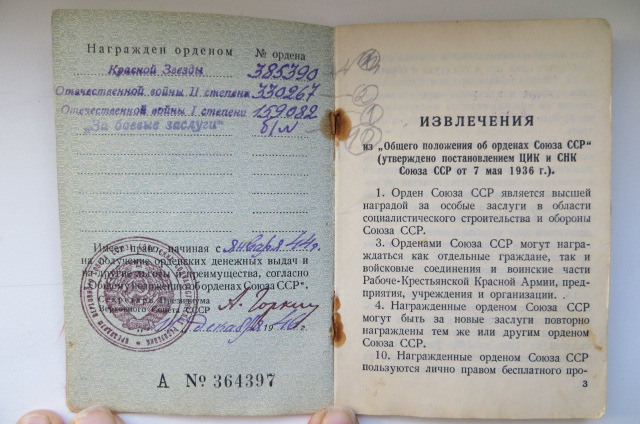 Награжден орденом № ордена
Красной Звезды 385390
Отечественной войны II степени 330267
Отечественной войны I степени 159082
„За боевые заслуги" б/н
Имеет право, начиная с января 44 г.
на получение орденских денежных выдач и
на другие льготы и преимущества, согласно
„Общего положения об орденах Союза ССР".
Секретарь Президиума
Верховного Совета СССР А. Горкин
декабря 194 г.
А № 364397
ИЗВЛЕЧЕНИЯ
из „Общего положения об орденах Союза ССР"
(утверждено постановлением ЦИК и СНК
Союза ССР от 7 мая 1936 г.).
1. Орден Союза ССР является высшей
наградой за особые заслуги в области
социалистического строительства и обороны
Союза ССР.
3. Орденами Союза ССР могут награ-
ждаться как отдельные граждане, так
и войсковые соединения и воинские части
Рабоче-Крестьянской Красной Армии, пред-
приятия, учреждения и организации.
4. Награжденные орденом Союза ССР
могут быть за новые заслуги повторно
награждены тем же или другим орденом
Союза ССР.
10. Награжденные орденом Союза ССР
пользуются лично правом бесплатного про-
3